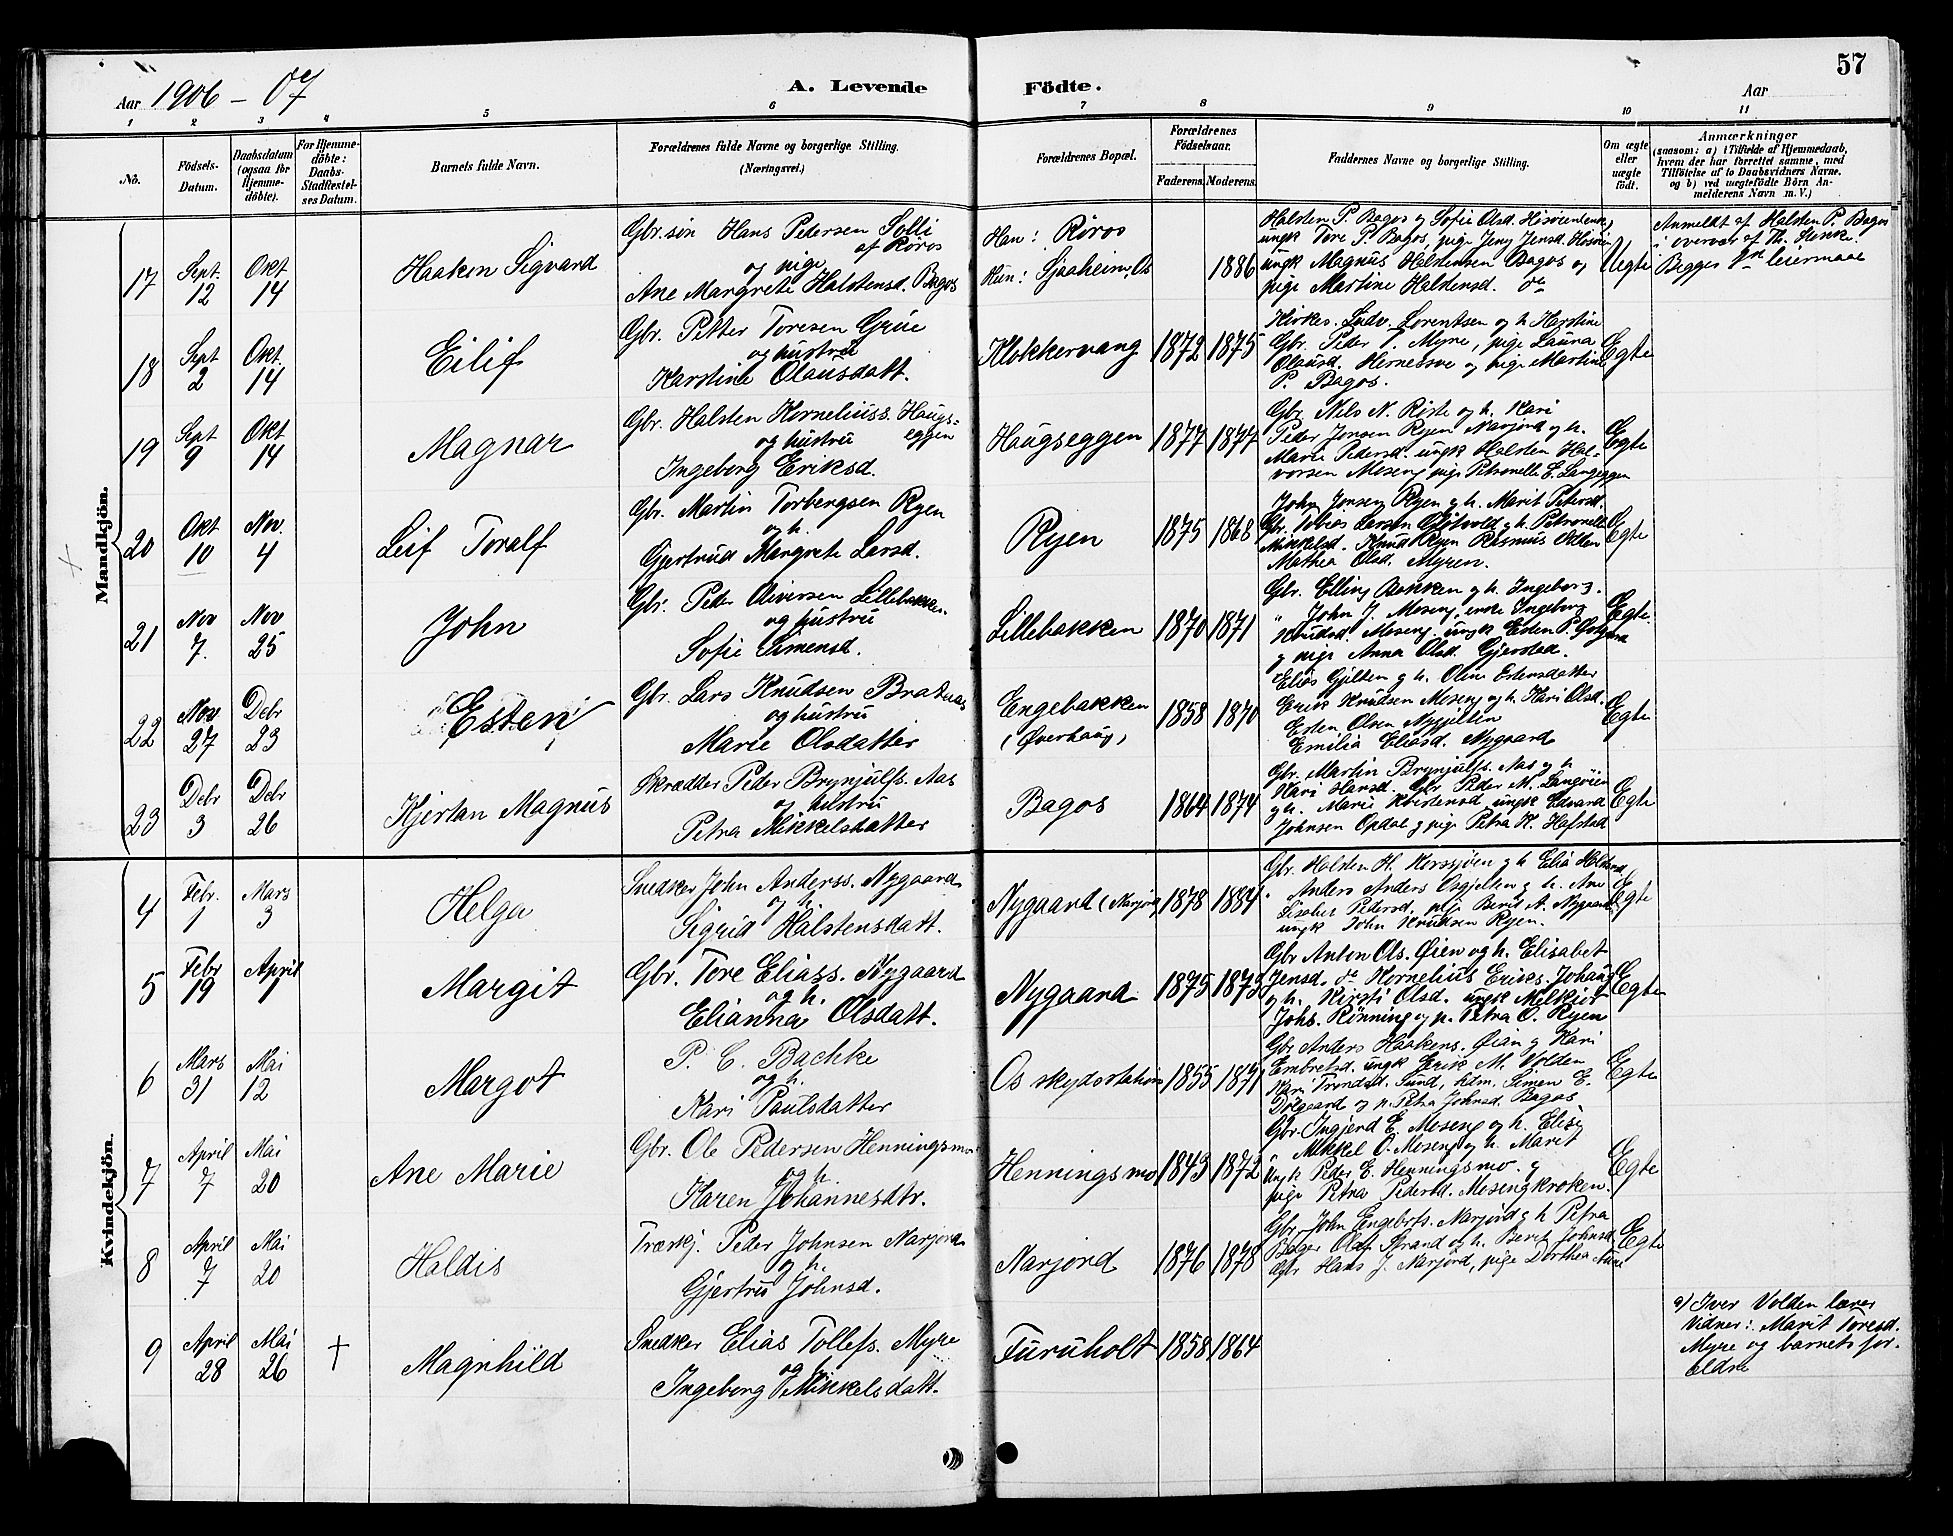 57
Aar 1906 - 07
A. Levende Födte.
Aar
1 2 3 4 5 6 7 8 9 10 11
No.
Födsels-Datum.
Daabsdatum (ogsaa for Hjemme-döbte).
For Hjemme-döbte: Daabs-Stadfæstel-ses Datum.
Barnets fulde Navn.
Forældrenes fulde Navne og borgerlige Stilling.
(Næringsvei.)
Forældrenes Bopæl.
Forældrenes Födselsaar.
Faderens. Moderens.
Faddernes Navne og borgerlige Stilling.
Om ægte eller uægte födt.
Anmærkninger
(saasom: a) i Tilfælde af Hjemmedaab,
hvem der har forrettet samme, med
Tilföielse af to Daabsvidners Navne.
og b) ved uægtefödte Börn An-
melderens Navn m. V.)
Mandkjön.
17
Sept. 12
Okt 14
Haakon Sigvard
Gbr. søn Hans Pedersen Solli
af Röros
og pige
Ane Margrete Halstensd. Bagos
Han: Röros
Hun: Sjaaheim, Os
1886
Halsten P. Bagos og Sofie Olsd.
ungk Tore P. Bagos, pige Jensd.
ungk Magnus Halstensen Bagos og
pige Martine Halstensd. do
Uegte
Anmeldt af Halsten P. Bagos
i overvær af Th.
Begges 1ste leiermaal
18
Sept 2
Okt. 14
Eilif
Gbr. Petter Toresen Grue
og hustru
Karstine Olausdatt.
Klokkervang
1872 1875
Kirkes. Ludv. Lorentsen og h. Karstine
Gbr. Peder T. Myre, pige Laura
Olausd. og pige Martine
P. Bagos.
Egte
19
Sept 9
Okt 14
Magnar
Gbr. Halsten Korneliuss. Haugs-
eggen
og hustru
Ingeborg Eriksd.
Haugseggen
1877 1877
Gbr. Nils N. Riste og h. Kari
Peder Jonsen Ryen Narjord og h.
Marie Pedersd. ungk Halsten Hal-
vorsen Moseng pige Petronelle E. Langeggen
Egte
20
Okt 10
Nov. 4
Leif Toralf
Gbr. Martin Torbergsen Ryen
og h.
Gjertrud Margrete Larsd.
Ryen
1875 1868
John Jonsen Ryen og h. Marit Petersd.
Gbr. Tobias Larsen og h. Petronelle
Mikkelsd. Knud Ryen Rasmus Volden
Mathea Olsd. Myren.
Egte
21
Nov 7.
Nov 25
John
Gbr. Peder Oliversen Lillebakken
og hustru
Sofie Simensd.
Lillebakken
1870 1871
Gbr. Elling Bakken og h. Ingeborg.
" John J. Moseng, enke Ingeborg
Knudsd. Moseng. ungk Esten P.
og pige Anna Olsd. Gjersted.
Egte.
22
Nov 27
Debr 23
Esten
Gbr. Lars Knudsen Bratnæs
og hustru
Marie Olsdatter
Engebakken
(Øverhaug)
1858 1870
Elias Gjilten og h. Oline Estensdatter
Erik Knudsen Moseng og h. Kari Olsd.
Esten Olsen Nygjilten
Emilia Eliasd. Nygaard
Egte
23
Debr 3
Debr 26
Kjertan Magnus
Skrædder Peder Brynjulfs. Aas
og hustru
Petra Mikkelsdatter
Bagos
1864 1874
Gbr. Martin Brynjulfs. Aas og h
Kari Hansd. Gbr Peder M. Langöien
og h. Marie Kristensd ungk Edvard
Johnsen Opdal og pige Petra H. Hafstad
Egte
Kvindekjön.
4
Febr. 1
Mars 3
Helga
Snedker John Anderss. Nygaard
og h
Sigrid Halstensdatt.
Nygaard (Narjord)
1878 1884
Gbr. Halsten H. Korssjöen og h. Elia Halstensd
" Anders Anders Osgjelten og h. Ane
Lisabet Pedersd. pige Berit A. Nygaard
ungk John Knudsen Ryen.
Egte
5
Febr 19
April 1
Margit
Gbr. Tore Eliass. Nygaard
og h.
Elianna Olsdatt.
Nygaard
1875 1873
Gbr Anton Ols. Øien og h. Elisabet
Jensd. do Kornelius Eriks. Johaug
og h. Kirsti Olsd. ungk Melkior
Johs. Rönning og p. Petra O. Ryen
Egte
6
Mars 31
Mai 12
Margot
P. C. Bachke
og h.
Kari Paulsdatter
Os skydsstation
1855 1871
Gbr Anders Haakens. Øian og Kari
Embretsd. ungk Erik M. Volden
Kari Trondsd. Sund, hdm. Simen E.
Dölgaard og p. Petra Johnsd. Bagos
Egte
7
April 7
Mai 20
Ane Marie
Gbr. Ole Pedersen Henningsmo
og h.
Karen Johannesdtr.
Henningsmo
1843 1872
Gbr. Ingjerd E. Moseng og h. Elisa
" Mikkel O. Moseng og h. Marit
ungk Peder E. Henningsmo. og
pige Petra Pedersd. Mosengkroken.
Egte
8
April 7
Mai 20
Haldis
Træskj. Peder Johnsen Narjord
og h.
Gjertru Johnsd.
Narjord
1876 1878
Gbr. John Engebrts. Narjord og h Petra
Bager Olaf Strand og h. Berit Johnsd
Gbr Hans J. Narjord, pige Dorthea
Egte
9
April 28
Mai 26
†
Magnhild
Snedker Elias Tollefs. Myre
og h
Ingeborg Mikkelsdatt.
Furuholt
1858 1864
a) Iver Volden lærer
Vidner: Marit Toresd.
Myre og barnets for-
ældre